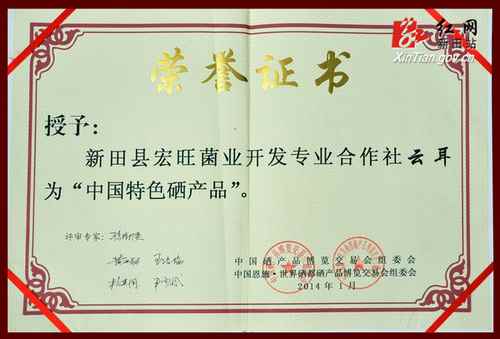 红网
新田站
XinTian.gov.cn
荣誉证书
授予：
新田县宏旺菌业开发专业合作社云耳
为“中国特色硒产品”。
评审专家：
中国硒产品博览交易会组委会
中国恩施·世界硒都硒产品博览交易会组委会
2014年1月